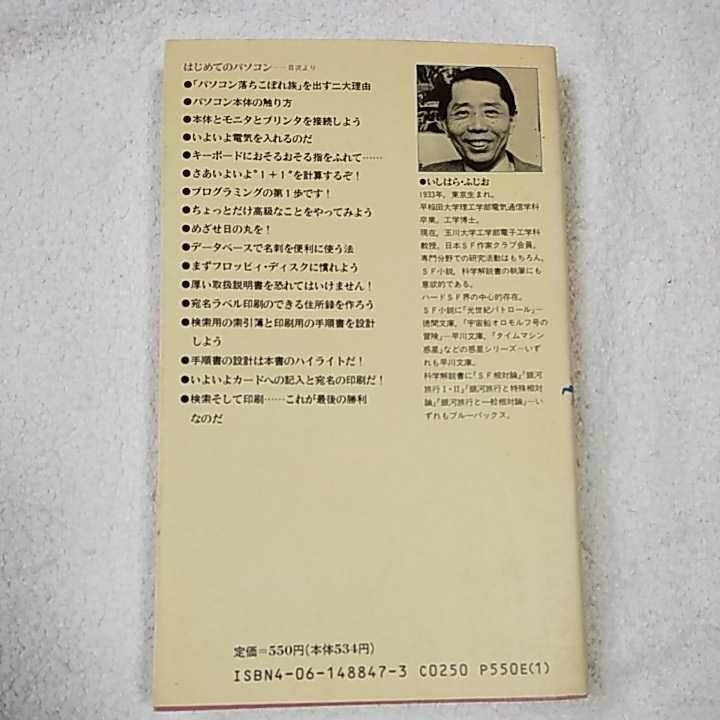 はじめてのパソコン──目次より
●「パソコン落ちこぼれ族」を出す二大理由
●パソコン本体の触り方
●本体とモニタとプリンタを接続しよう
●いよいよ電気を入れるのだ
●キーボードにおそるおそる指をふれて……
●さあいよいよ"1＋1"を計算するぞ！
●プログラミングの第1歩です！
●ちょっとだけ高級なことをやってみよう
●めざせ日の丸を！
●データベースで名刺を便利に使う法
●まずフロッピィ・ディスクに慣れよう
●厚い取扱説明書を恐れてはいけません！
●宛名ラベル印刷のできる住所録を作ろう
●検索用の索引簿と印刷用の手順書を設計
しよう
●手順書の設計は本書のハイライトだ！
●いよいよカードへの記入と宛名の印刷だ！
●検索そして印刷……これが最後の勝利
なのだ
●いしはら・ふじお
1933年，東京生まれ。
早稲田大学理工学部電気通信学科
卒業。工学博士。
現在，玉川大学工学部電子工学科
教授。日本SF作家クラブ会員。
専門分野での研究活動はもちろん，
SF小説，科学解説書の執筆にも
意欲的である。
ハードSF界の中心的存在。
SF小説に『光世紀パトロール』―
徳間文庫，『宇宙船オロモルフ号の
冒険』―早川文庫，『タイムマシン
惑星』などの惑星シリーズ―いず
れも早川文庫。
科学解説書に『SF相対論』『銀河
旅行Ⅰ・Ⅱ』『銀河旅行と特殊相対
論』『銀河旅行と一般相対論』―い
ずれもブルーバックス。
定価＝550円(本体534円)
ISBN4-06-148847-3 C0250 P550E(1)